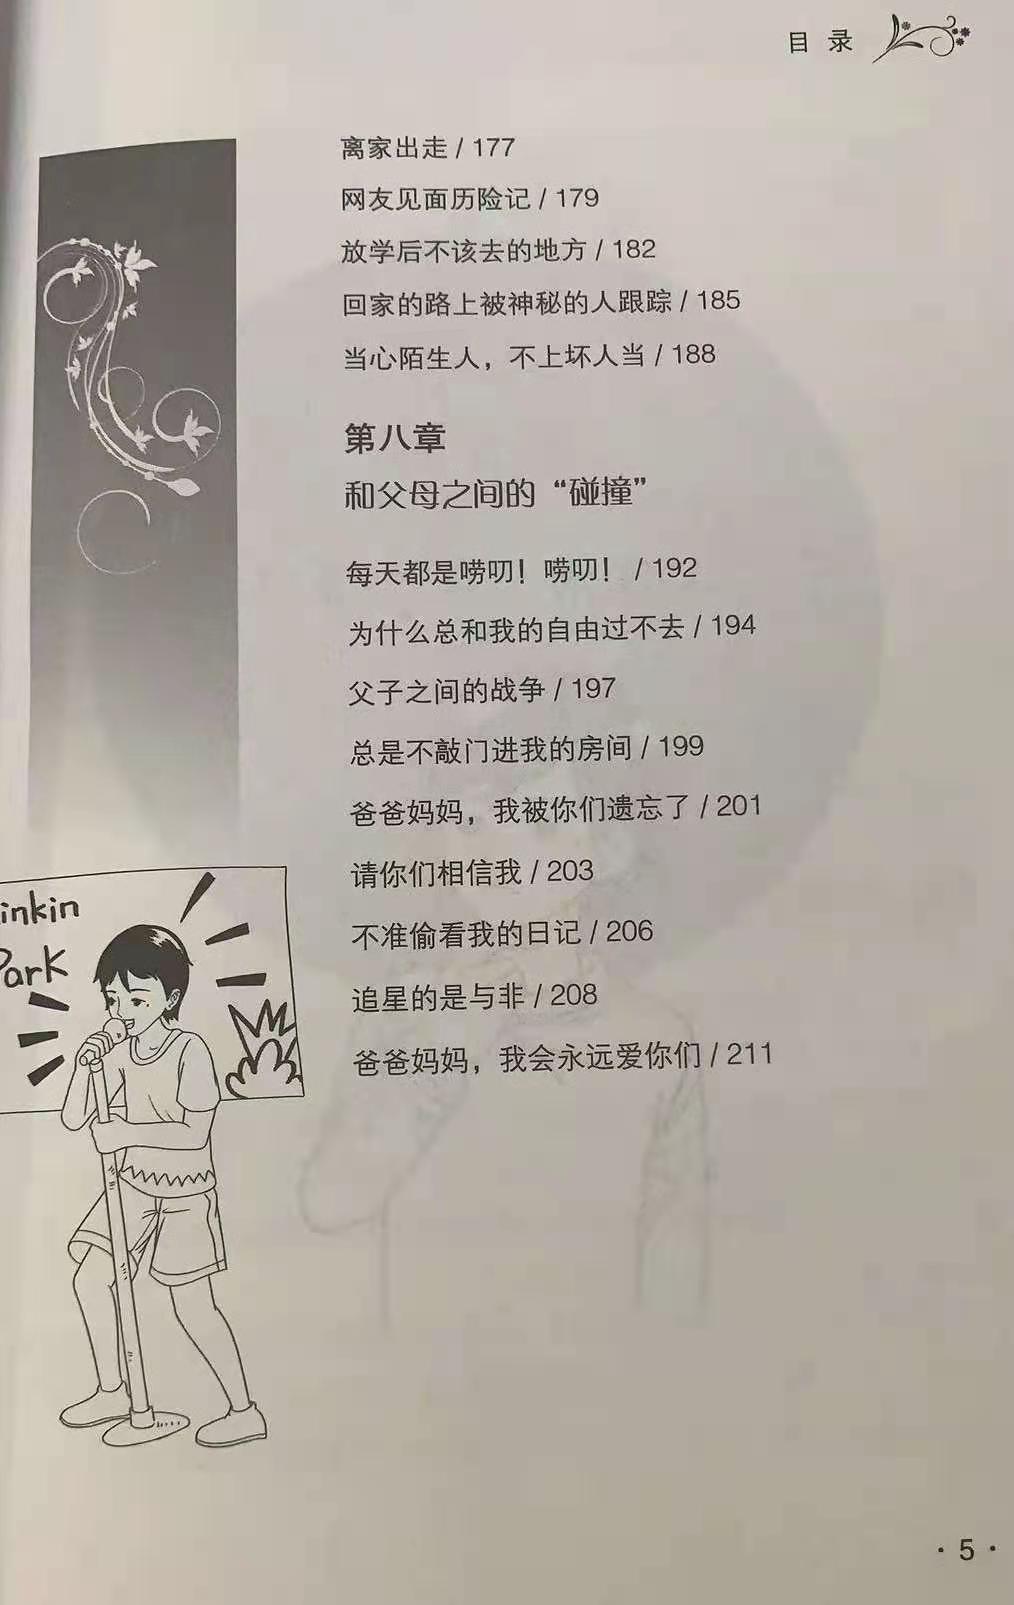 目 录
离家出走 / 177
网友见面历险记 / 179
放学后不该去的地方 / 182
回家的路上被神秘的人跟踪 / 185
当心陌生人，不上坏人当 / 188
第八章
和父母之间的“碰撞”
每天都是唠叨！唠叨！ / 192
为什么总和我的自由过不去 / 194
父子之间的战争 / 197
总是不敲门进我的房间 / 199
爸爸妈妈，我被你们遗忘了 / 201
请你们相信我 / 203
不准偷看我的日记 / 206
追星的是与非 / 208
爸爸妈妈，我会永远爱你们 / 211
inkin
Park
· 5 ·